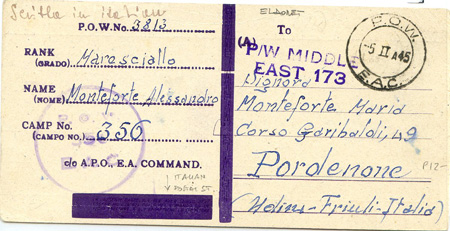 Scritta in italiano
P.O.W. No. 3813
RANK
(GRADO). Maresciallo
NAME
(NOME) Monteforte Alessandro
CAMP No.
(CAMPO NO.) 356
c/o A.P.O., E.A. COMMAND.
To
(A)
P/W MIDDLE
EAST 173
P.O.W.
5 II A45
E.A.C.
Signora
Monteforte Maria
Corso Garibaldi, 49
Pordenone
(Udine-Friuli-Italia)
P12-
ITALIAN